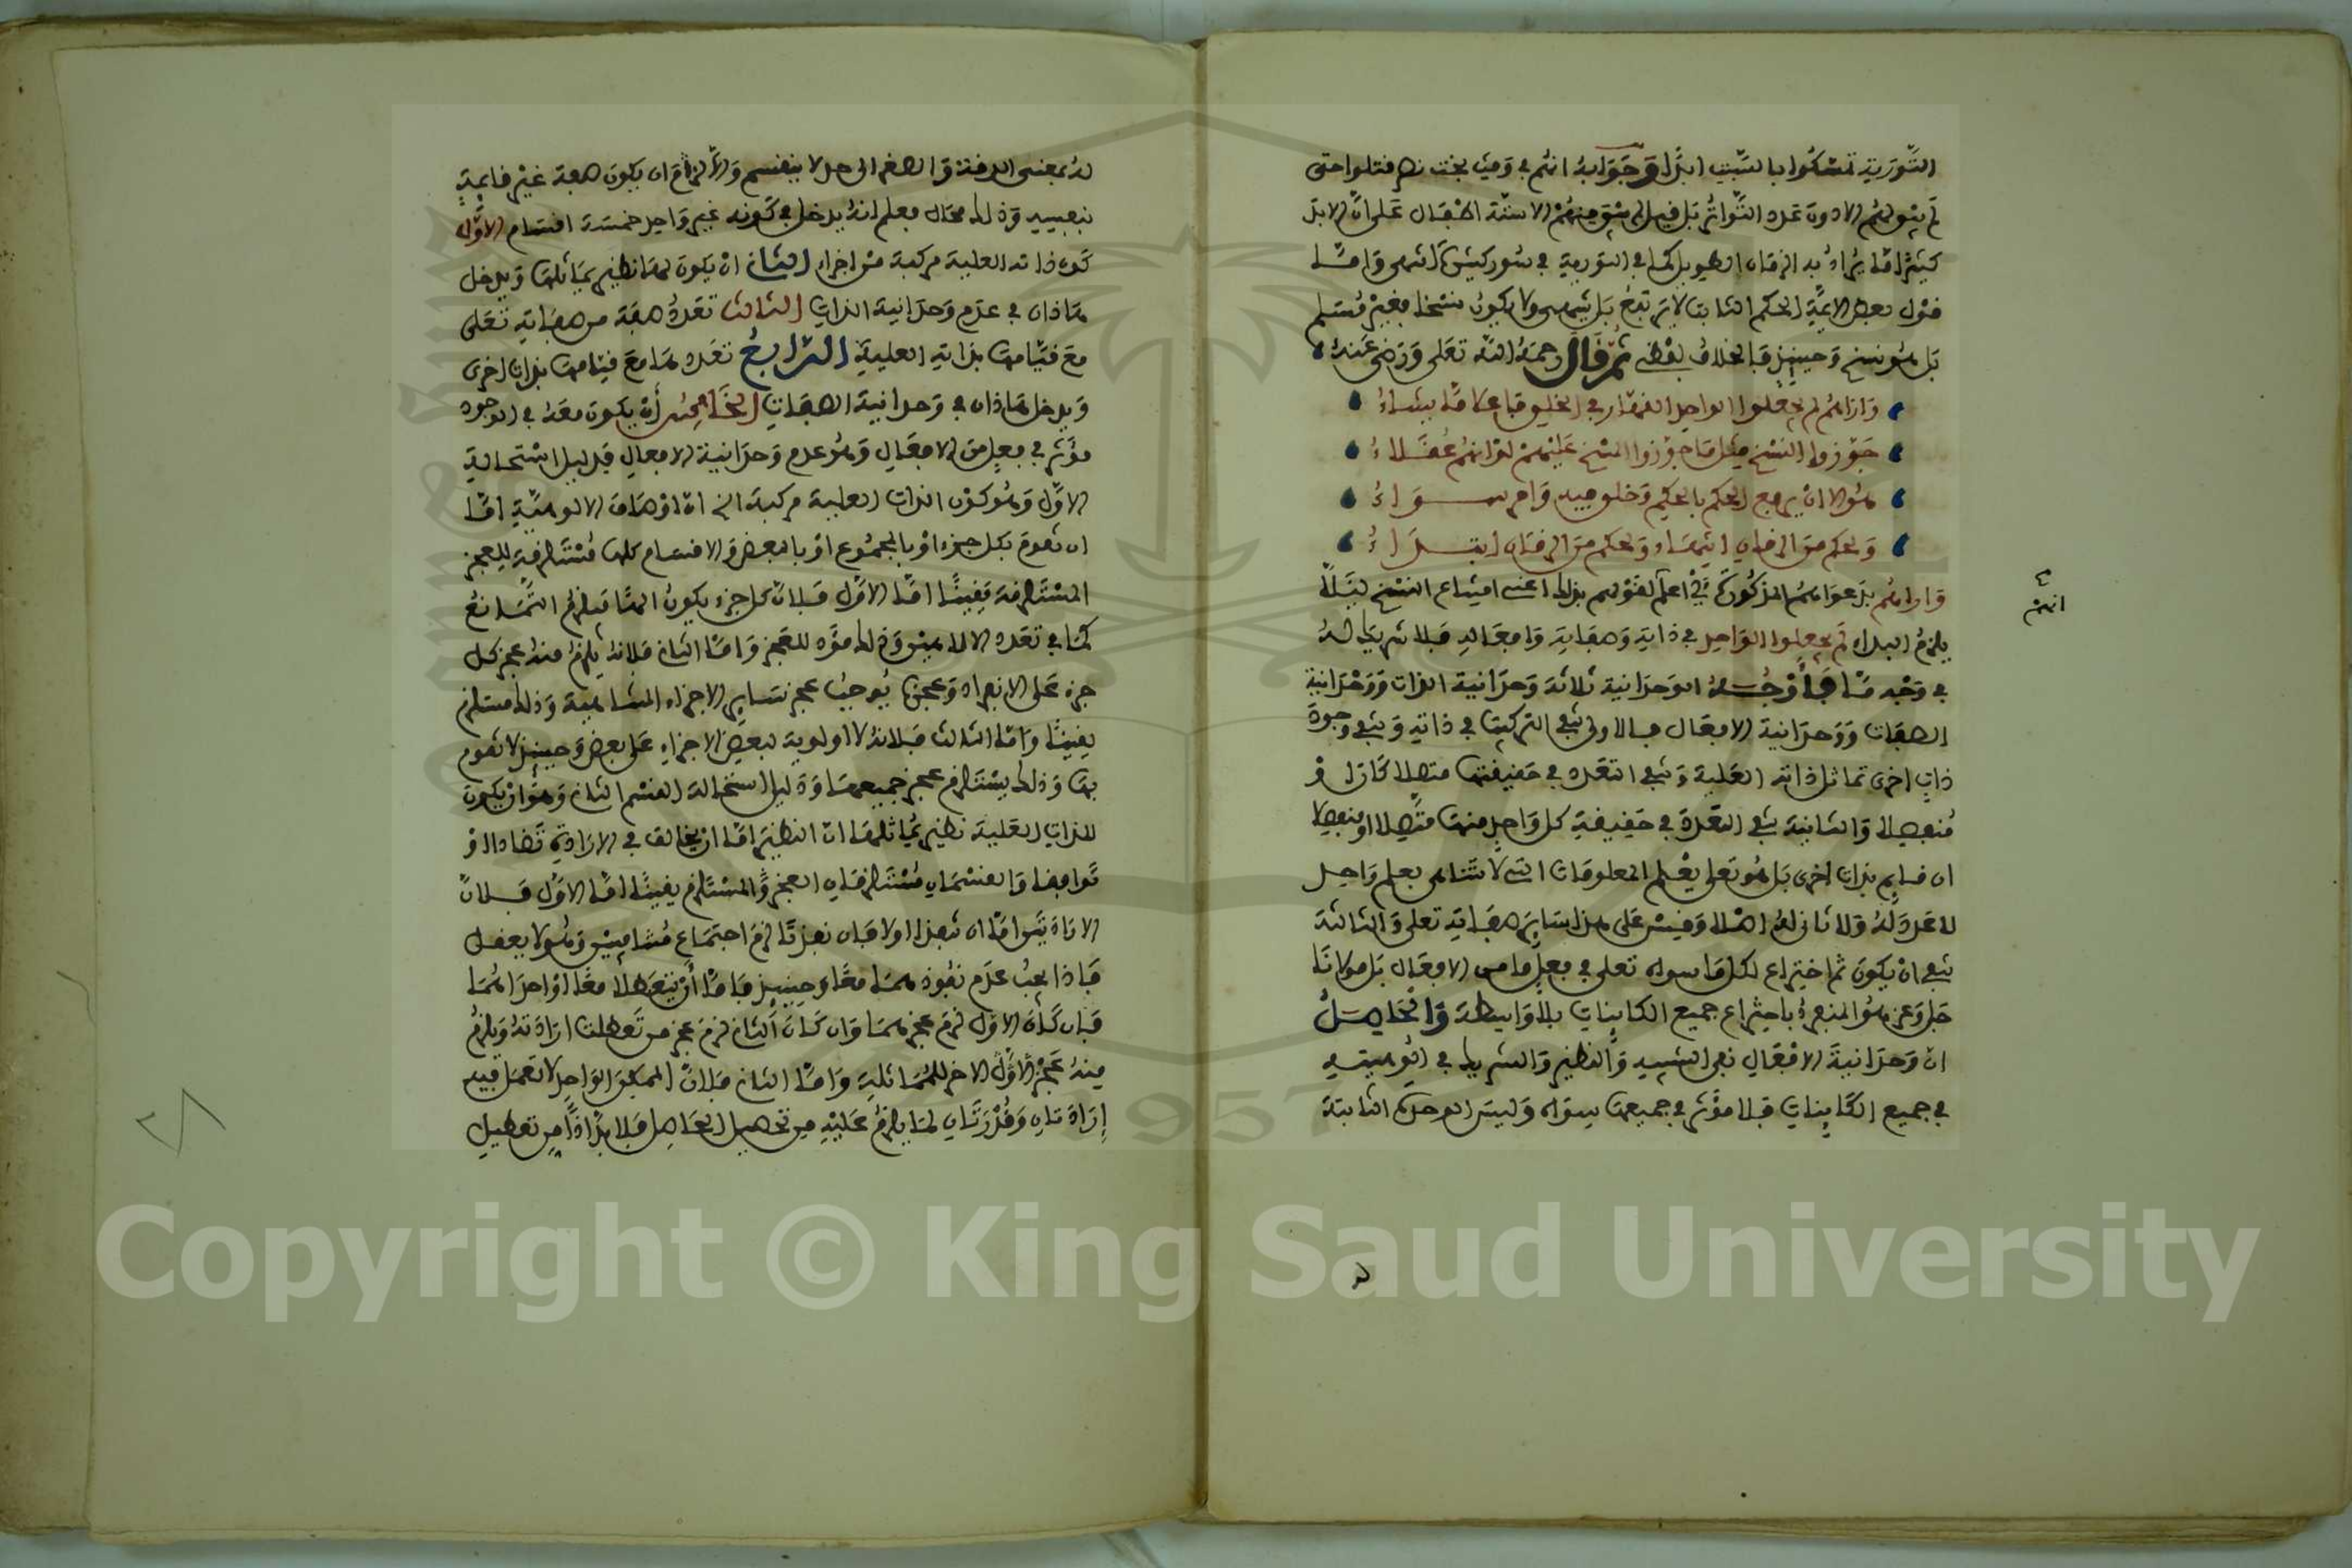 التَّوْرَيةِ تمسَّكُوا بالسَّبْتِ ابدًا وَجَوَابُهُ انهم في وَقت بخت نصر قتلوا حتى
لم يبْق منهم الا دون عَدد التَّواتُر بَل قيل لم يبق منهمْ الا ستة اطفال عَلى انَّ الابدَ
كثيرًا مَّا يُرادُ به الزمان الطويل كما في التورية في سور كثيرة انتهى وَامَّا
قول بعض الايمَّةِ الحكم الثابت لا يَرتفعُ بَل ينتهى ولا يكونُ نسخا فغيْر مُسَلم
بَل هو نسخ وَحينئِذٍ فالخلافُ لفظى ثمَّ قَالَ رحمَهُ اللهُ تعَلى وَرَضي عَنهُ
وَارَاهُم لم يجْعلوا الواحِد القهَّار في الخلق فاعلا مَّا يشاءُ
جَوّزوا النَّسْخ مثل مَا جوّزوا المسْخ عَليْهمْ لوْ انهُمْ فُقَهَاءُ
هوَ الا انْ يرفع الحكم بالحكم وَخلق فيه وَامر سَوَاءُ
وَلحكم منَ الزمان انتهَاء وَلحكم منَ الزمان ابتدَاءُ
انهم
وَاراهُم بدَعوَاهمُ المذكورة أي اعلم لقوْلهم بذلك اعنى امتناع النسْخ ليَلَّا
يلزمُ البداء لم يجعلوا الوَاحِد في ذاتِهِ وَصفاتِهِ وَافعَالِهِ فَلا شريك لهُ
في وَجْه مَّا فأوْجُهُ الوَحدَانية ثلاثة وَحدَانية الذات وَوَحْدَانية
الصفات وَوَحدَانية الافعَال فالاولى تنفى التركيبَ في ذاته وَتنفى وجودَ
ذاتٍ اخرى تماثل ذاته العَلية وَتنفى التعدد في حَقيقتها متصلا كَانَ اوْ
مُنفصلا وَالثانية تنفى التعَددَ في حَقيقةِ كل وَاحِدٍ منها متَّصِلا او منفصِلا
ان قايم بذات اخرى بَل هُو تعلى يَعْلم المعلومَات التى لا تتناهى بعلم وَاحِد
لا عَدَدَ لَهُ وَلا ثانىَ لهُ اصْلا وَقِسْ عَلى هذا سَايرَ صفَاتِهِ تعلى وَالثالثة
تنفى انْ يكونَ ثم اختراع لكل مَا سواه تعلى في فعل ما من الافعَال بَل مولانَا
جَل وَعَز هوَ المنفردُ باختِرَاع جميع الكاينات بلا وَاسِطة وَالحَاصِلُ
ان وَحدَانيةَ الافْعَالِ نفى الشبيه وَالنظير وَالشريك في الوهيته
في جميع الكَاينات فَلا مؤثر في جميعها سِوَاه وَليسَ الوحدة الثابتة
لهُ بمعنى الدقة وَالصغر الى حد لا ينقسم وَإلاَّ لزمَ ان يكونَ صفة غيْر قايمةٍ
بنفسه وَذلك محَال فعلم انهُ يدخل في كَونه غير وَاحِد خمسَة اقسَام الاوَّل
كوْن ذاته العلية مركبة منْ اجزاء الثانى انْ يَكونَ لهَا نظير يمَاثلهَا وَيدخل
هَاذان في عدم وَحدَانية الذات الثالث تعَدُّدُ صفة من صفاته تعَلى
معَ قيَامها بذاته العلية الرَّابعُ تعَدد لهَا معَ قيامها بذات اخرى
وَيدخل هاذان في وَحدانية الصفات الخَامِسُ أَنْ يكونَ معَهُ في الوجود
مؤثر في فعلٍ منَ الافعَال وَهُو عدم وَحدَانية الافعالِ فدليل استحالة
الاوَّل وَهُو كوْن الذات العلية مركبة الخ ان اوْصَافَ الالوهيَّة امَّا
ان تقومَ بكل جزء اوْ بالمجمُوع اوْ بالبعض وَالاقسام كلها مُسْتلزمة للعجز
المسْتلزمة يَقينًا امَّا الاوّل فَلانَّ كل جزء يكونُ الهًا فيلزمُ التمَانعُ
كمَا في تعَدد الالاهيْن وَذلك مؤد للعجز وَامَّا الثانى فلانهُ يلزمُ منهُ عجز كل
جزء عَلى الانفراد وَعجزهَا يُوجبُ عجز سَايرِ الاجزاء المتناهية وَذلك مستلزم
يقينًا وَامَّا الثالث فلانهُ لا اولوية لبعضِ الاجزاءِ عَلى بعض وَحينئذ لا تقوم
بها وَذلك يسْتلزم عجز جميعهَا وَدَليل استحالة القسم الثانى وَهوَ انْ يكونَ
للذاتِ العَلية نظير يُمَاثلهَا ان النظير امَّا انْ يخالف في الارَادة تضادا اوْ
توَافقا وَالقسْمان مُسْتلزمَان العجز وَالمسْتلزم يقينًا امَّا الاوَّل فَلانَّ
الارَادَتيْن امَّا ان تنفذا اولا فان نفذتَا لزمَ اجتمَاع مُتنافييْن وَهُو لا يعقل
فَاذا يجبُ عدَم نفُوذهمَا معًا وَحينئِذٍ فَامَّا أَنْ يتعطلا معًا اوْ احدَاهُمَا
فَان كَان الاوّل لزمَ عجزهمَا وَان كَانَ الثانى لزمَ عجز من تعطلت ارَادَتهُ وَيلزمُ
مِنهُ عَجْز الاخر للمُمَاثلةِ وَامَّا الثانى فَلانَّ الممكن الوَاحِد لا تعمَل فيه
إرَادَتان وَقُدْرَتَان لمَا يلزمُ عَلَيْهِ من تحصيل الحَاصِل فَلا بدَّ اذًا مِن تعطيلِ
Copyright © King Saud University
1957